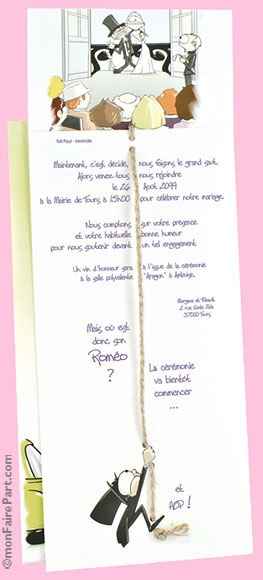 Maintenant, c'est décidé, nous faisons le grand saut.
Alors venez tous nous rejoindre
le 26 Août 2099
à la Mairie de Tours à 15h00 pour célébrer notre mariage.
Nous comptons sur votre présence
et votre habituelle bonne humeur
pour nous soutenir devant un tel engagement.
Un vin d'honneur sera à l'issue de la cérémonie
à la salle polyvalente
Mais, où est
donc son
Roméo
?
La cérémonie
va bientôt
commencer
...
et
HOP !
37000 Tours
©monFairePart.com